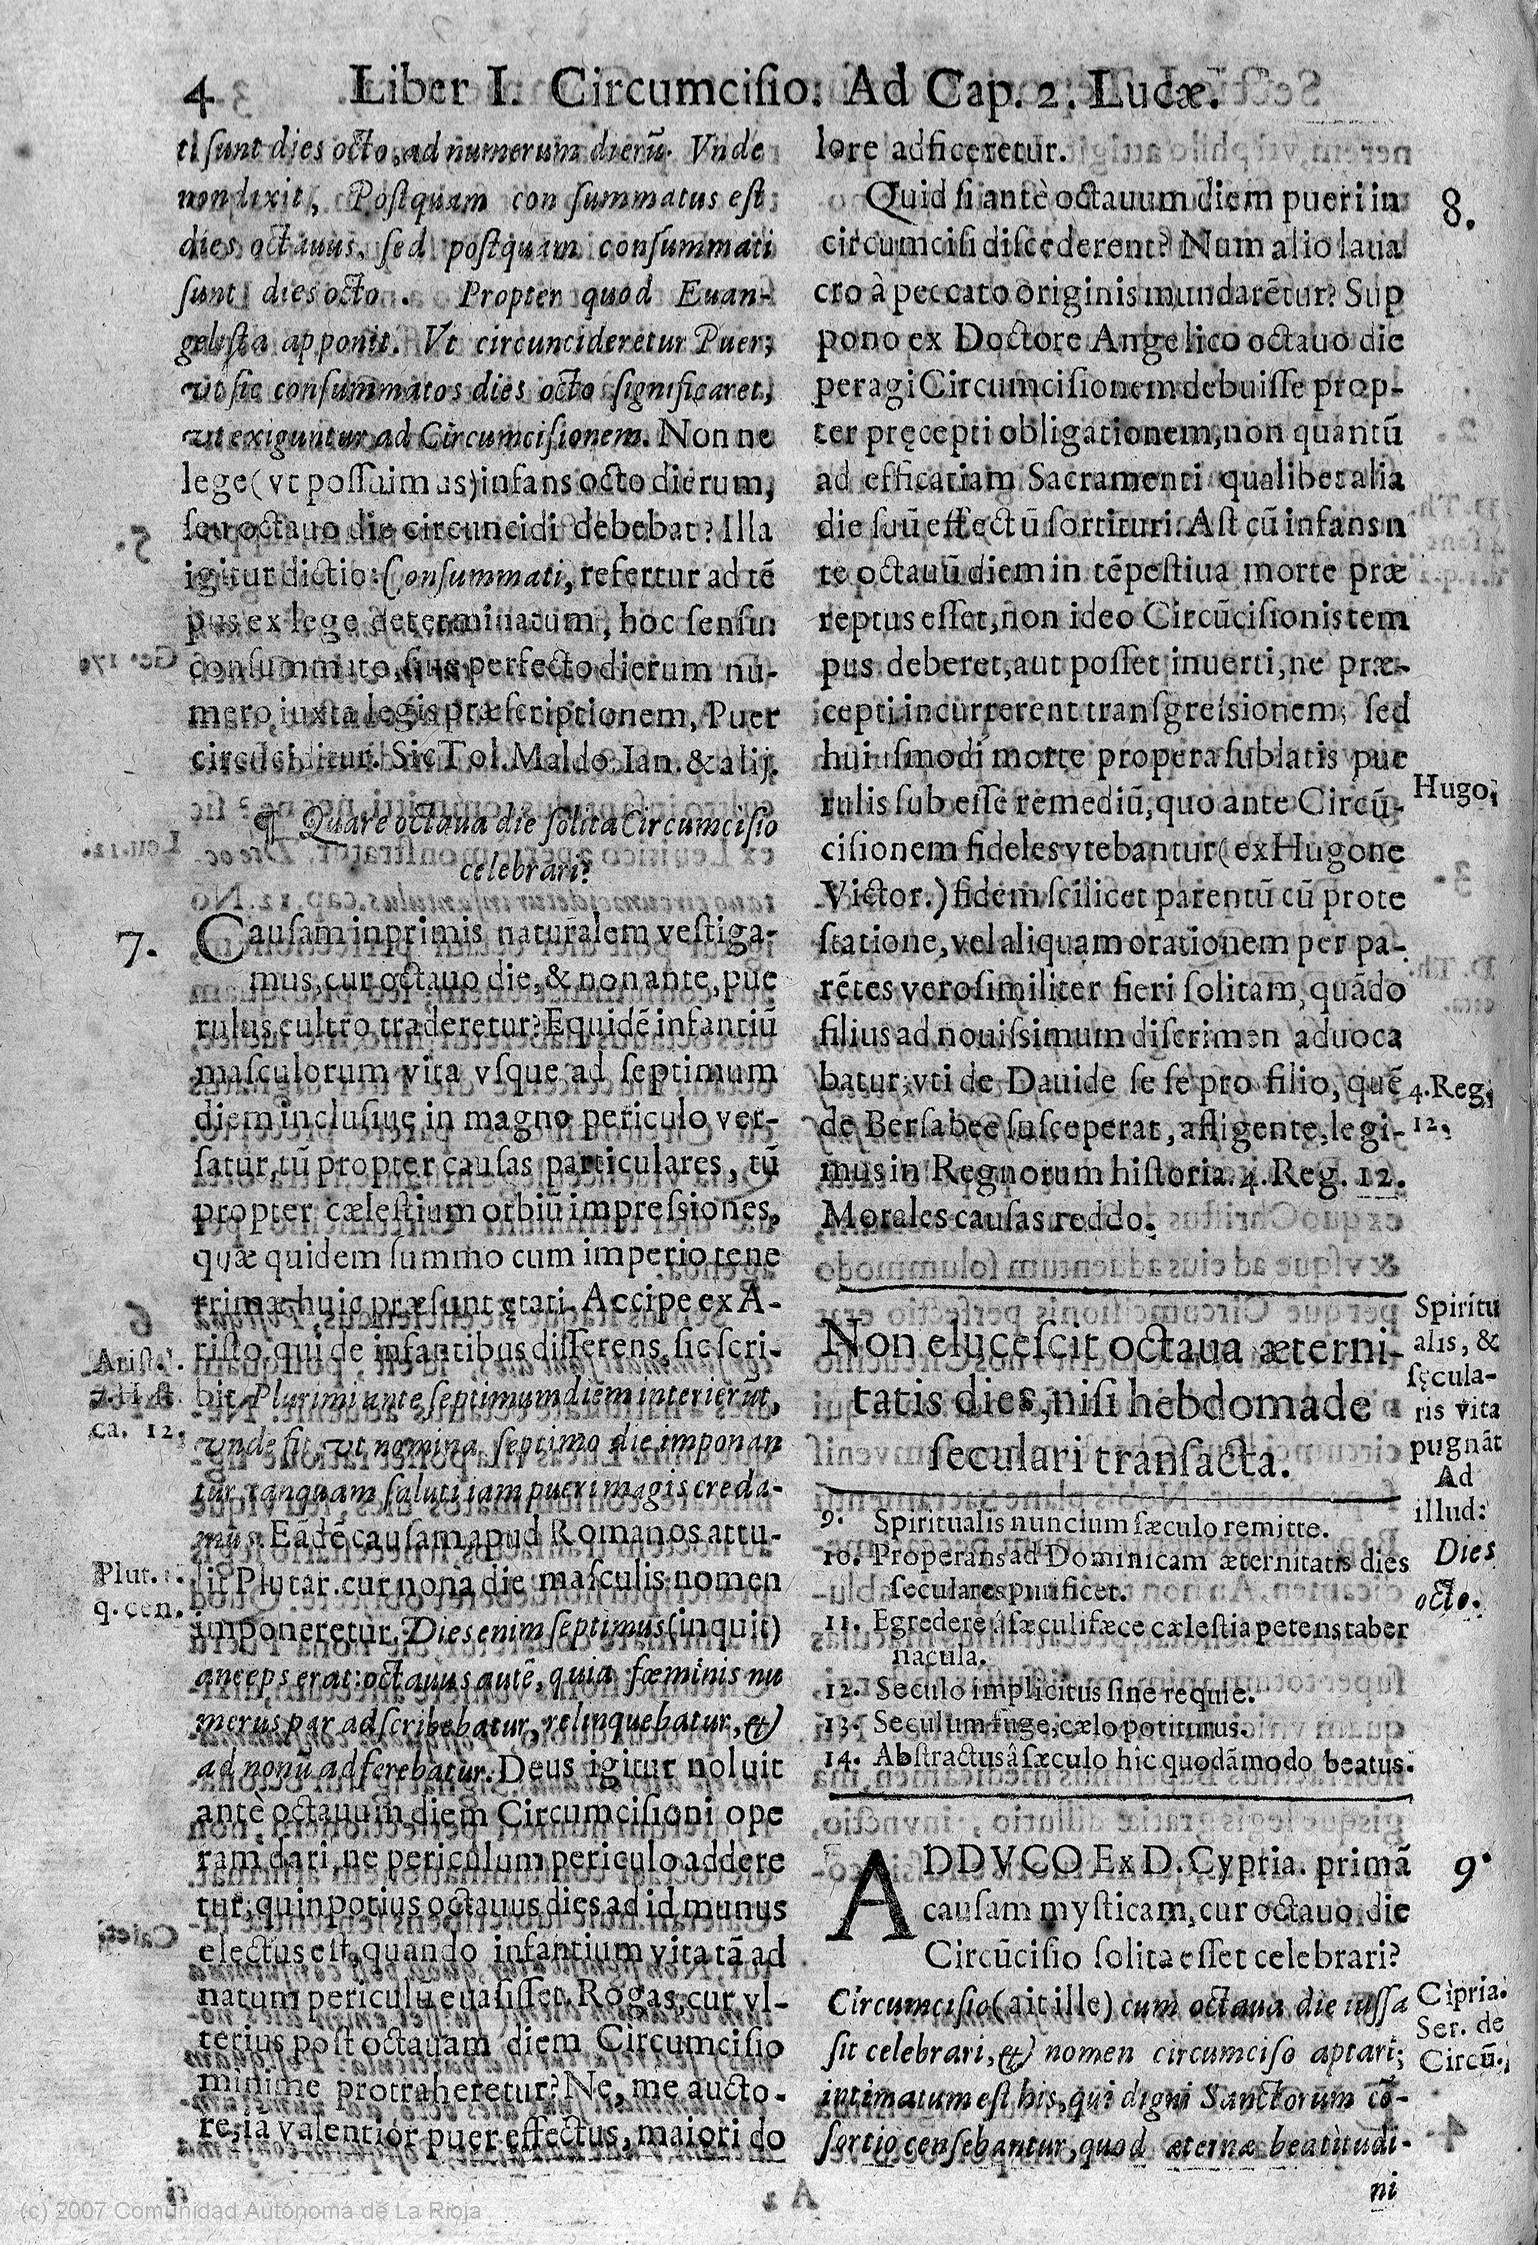 4 Liber I. Circumciſio. Ad Cap. 2. Lucæ.
ti ſunt dies octo, ad numerum dierũ. Vnde
non dixit, Poſtquam con ſummatus eſt
dies octauus, ſed poſtquam conſummati
ſunt dies octo. Propter quod Euan-
geliſta apponit. Vt circuncideretur Puer;
vt ſic conſummatos dies octo ſignificaret,
vt exiguntur ad Circumciſionem. Non ne
lege (vt poſſuimus) infans octo dierum,
ſeu octauo die circuncidi debebat? Illa
igitur dictio: Conſummati, refertur ad tẽ
pus ex lege determinatum, hoc ſenſu:
conſummato, ſiue perfecto dierum nu-
mero, iuxta legis præſcriptionem, Puer
circũciditur. Sic Tol. Maldo. Ian. & alij.
¶ Quare octaua die ſolita Circumciſio
celebrari?
7. Cauſam inprimis naturalem veſtiga-
mus, cur octauo die, & non ante, pue
rulus cultro traderetur? Equidẽ infantiũ
maſculorum vita vſque ad ſeptimum
diem incluſiuę in magno periculo ver-
ſatur, tũ propter cauſas particulares, tũ
propter cæleſtium orbiũ impreſsiones,
quæ quidem ſummo cum imperio tene
rrimæ huic præſunt ętati. Accipe ex A-
riſto. qui de infantibus diſſerens, ſic ſcri-
bit. Plurimi ante ſeptimum diem interierũt,
vnde fit, vt nomina ſeptimo die imponan
tur, tanquam ſaluti iam pueri magis creda-
mus. Eãdẽ cauſam apud Romanos attu-
lit Plutar. cur nona die maſculis nomen
imponeretur. Dies enim ſeptimus (inquit)
anceps erat: octauus autẽ, quia fæminis nu
merus par adſcribebatur, relinquebatur, &
ad nonũ adferebatur. Deus igitur noluit
antè octauum diem Circumciſioni ope
ram dari, ne periculum periculo addere
tur; quin potius octauus dies ad id munus
electus eſt, quando infantium vita tã ad
natum periculũ euaſiſſet. Rogas, cur vl-
terius poſt octauam diem Circumciſio
minime protraheretur? Ne, me aucto-
re, ia valentior puer effectus, maiori do
Ariſt.
7. Hiſt.
ca. 12.
Plut.
q. cen.
lore adficeretur.
Quid ſi antè octauum diem pueri in
circumciſi diſcederent? Num alio laua
cro à peccato originis mundarẽtur? Sup
pono ex Doctore Angelico octauo die
peragi Circumciſionem debuiſſe prop-
ter pręcepti obligationem, non quantũ
ad efficatiam Sacramenti qualibet alia
die ſuũ effectũ ſortituri. Aſt cũ infans n
te octauũ diem in tẽpeſtiua morte præ
reptus eſſet, non ideo Circũciſionis tem
pus deberet, aut poſſet inuerti, ne præ-
cepti incurrerent tranſgreſsionem; ſed
huiuſmodi morte propera ſublatis pue
rulis ſub eſſe remediũ, quo ante Circũ-
ciſionem fideles vtebantur (ex Hugone
Victor.) fidem ſcilicet parentũ cũ prote
ſtatione, vel aliquam orationem per pa-
rẽtes veroſimiliter fieri ſolitam, quãdo
filius ad nouiſsimum diſcrimen aduoca
batur; vti de Dauide ſe ſe pro filio, quẽ
de Berſabee ſuſceperat, afligente, legi-
mus in Regnorum hiſtoria. 4. Reg. 12.
Morales cauſas reddo.
8.
Hugo,
4. Reg.
12.
Non eluceſcit octaua æterni-
tatis dies, niſi hebdomade
ſeculari tranſacta.
9. Spiritualis nuncium ſæculo remitte.
10. Properans ad Dominicam æternitatis dies
ſeculares purificet.
11. Egredere â ſæculi fæce cæleſtia petens taber
nacula.
12. Seculo implicitus ſine requie.
13. Seculum fuge, cælo potiturus.
14. Abſtractus â ſæculo hic quodãmodo beatus.
Spiritu
alis, &
ſęcula-
ris vita
pugnãt
Ad
illud:
Dies
octo.
ADDVCO Ex D. Cypria. primã
cauſam myſticam, cur octauo die
Circũciſio ſolita eſſet celebrari?
Circumciſio (ait ille) cum octaua die iuſſa
ſit celebrari, & nomen circumciſo aptari;
intimatum eſt his, qui digni Sanctorum cõ-
ſortio cenſebantur, quod æternæ beatitudi-
ni
9.
Cipria.
Ser. de
Circũ.
(c) 2007 Comunidad Autónoma de La Rioja